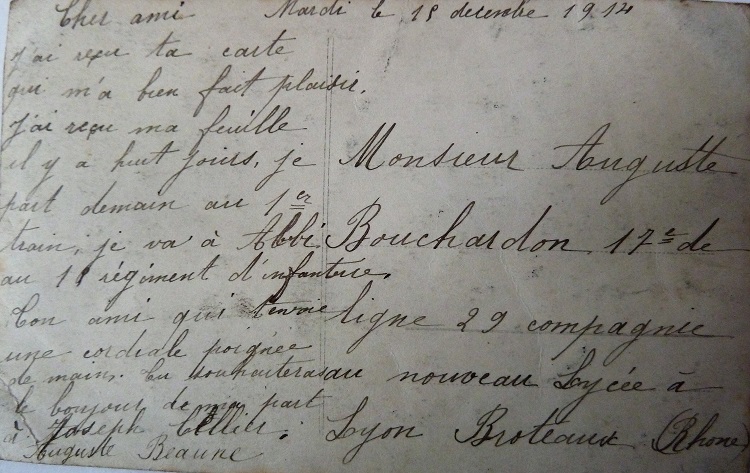 Cher ami Mardi le 15 decembre 1914
J'ai reçu ta carte
qui m'a bien fait plaisir.
J'ai reçu ma feuille
il y a huit jours, je
part demain au 1er
train, je va à Albi
au 15 régiment d'infanterie.
Ton ami qui t'envoie
une cordiale poignée
de mains. Tu souhaiteras
le bonjour de ma part
à Joseph
Auguste Beaune
Monsieur Auguste
Bouchardon 17e de
ligne 29 compagnie
au nouveau Lycée à
Lyon Broteaux (Rhone)